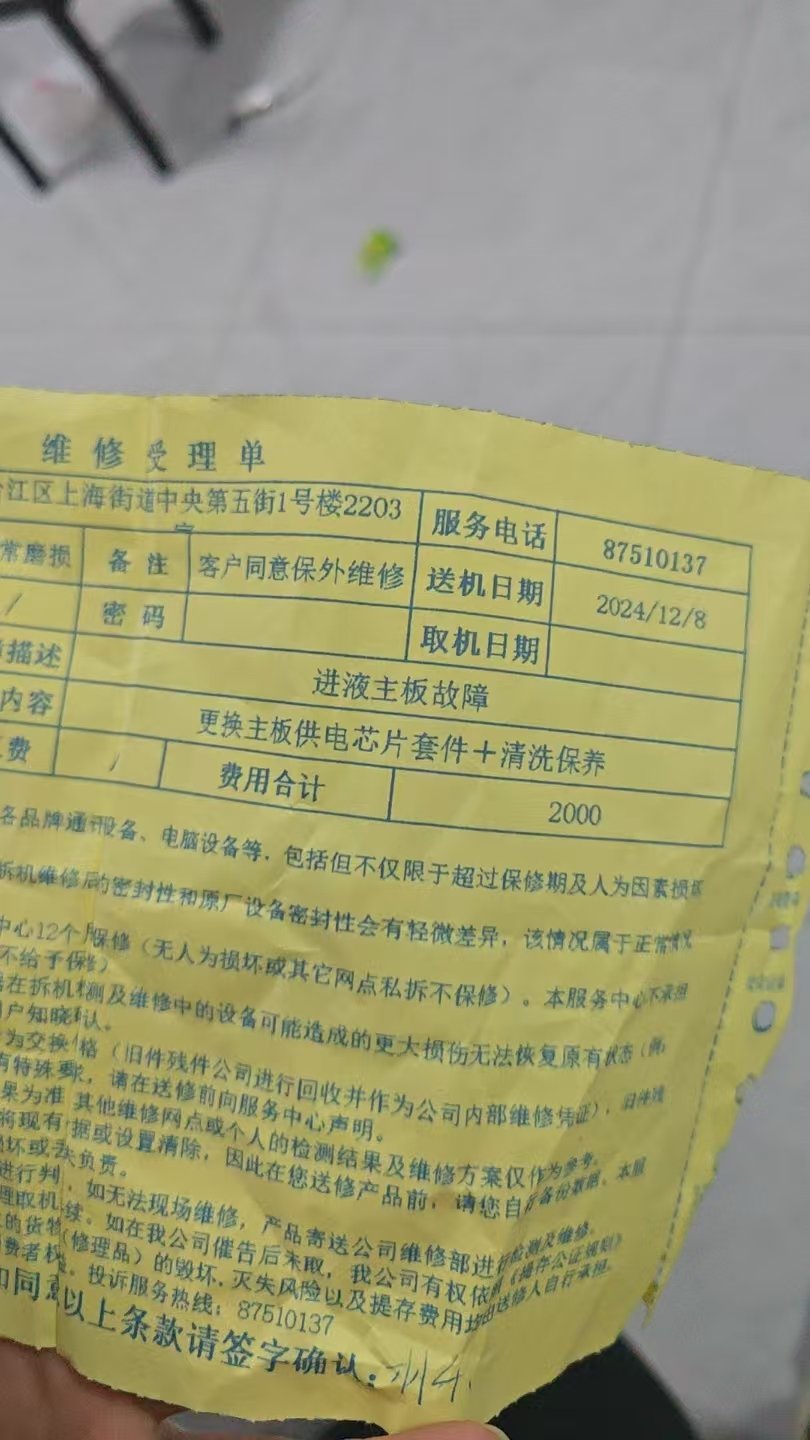 维修受理单
江区上海街道中央第五街1号楼2203
服务电话 87510137
常磨损 备注 客户同意保外维修 送机日期 2024/12/8
/ 密码 取机日期
描述 进液主板故障
内容 更换主板供电芯片套件+清洗保养
费 / 费用合计 2000
各品牌通讯设备、电脑设备等，包括但不仅限于超过保修期及人为因素损坏
拆机维修后的密封性和原厂设备密封性会有轻微差异，该情况属于正常情况
中心12个月保修（无人为损坏或其它网点私拆不保修）。本服务中心不承担
不给予保修）
在拆机检测及维修中的设备可能造成的更大损伤无法恢复原有状态（例：
户知晓确认。
为交换价格（旧件残件公司进行回收并作为公司内部维修凭证），旧件残
有特殊要求，请在送修前向服务中心声明。
果为准，其他维修网点或个人的检测结果及维修方案仅作为参考。
将现有数据或设置清除，因此在您送修产品前，请您自行备份数据。本服
损坏或丢失负责。
进行判，如无法现场维修，产品寄送公司维修部进行检测及维修。
理取机手续。如在我公司催告后未取，我公司有权依照《提存公证规则》
的货物（修理品）的毁坏，灭失风险以及提存费用均由送修人自行承担。
费者权 投诉服务热线：87510137
如同意以上条款请签字确认：